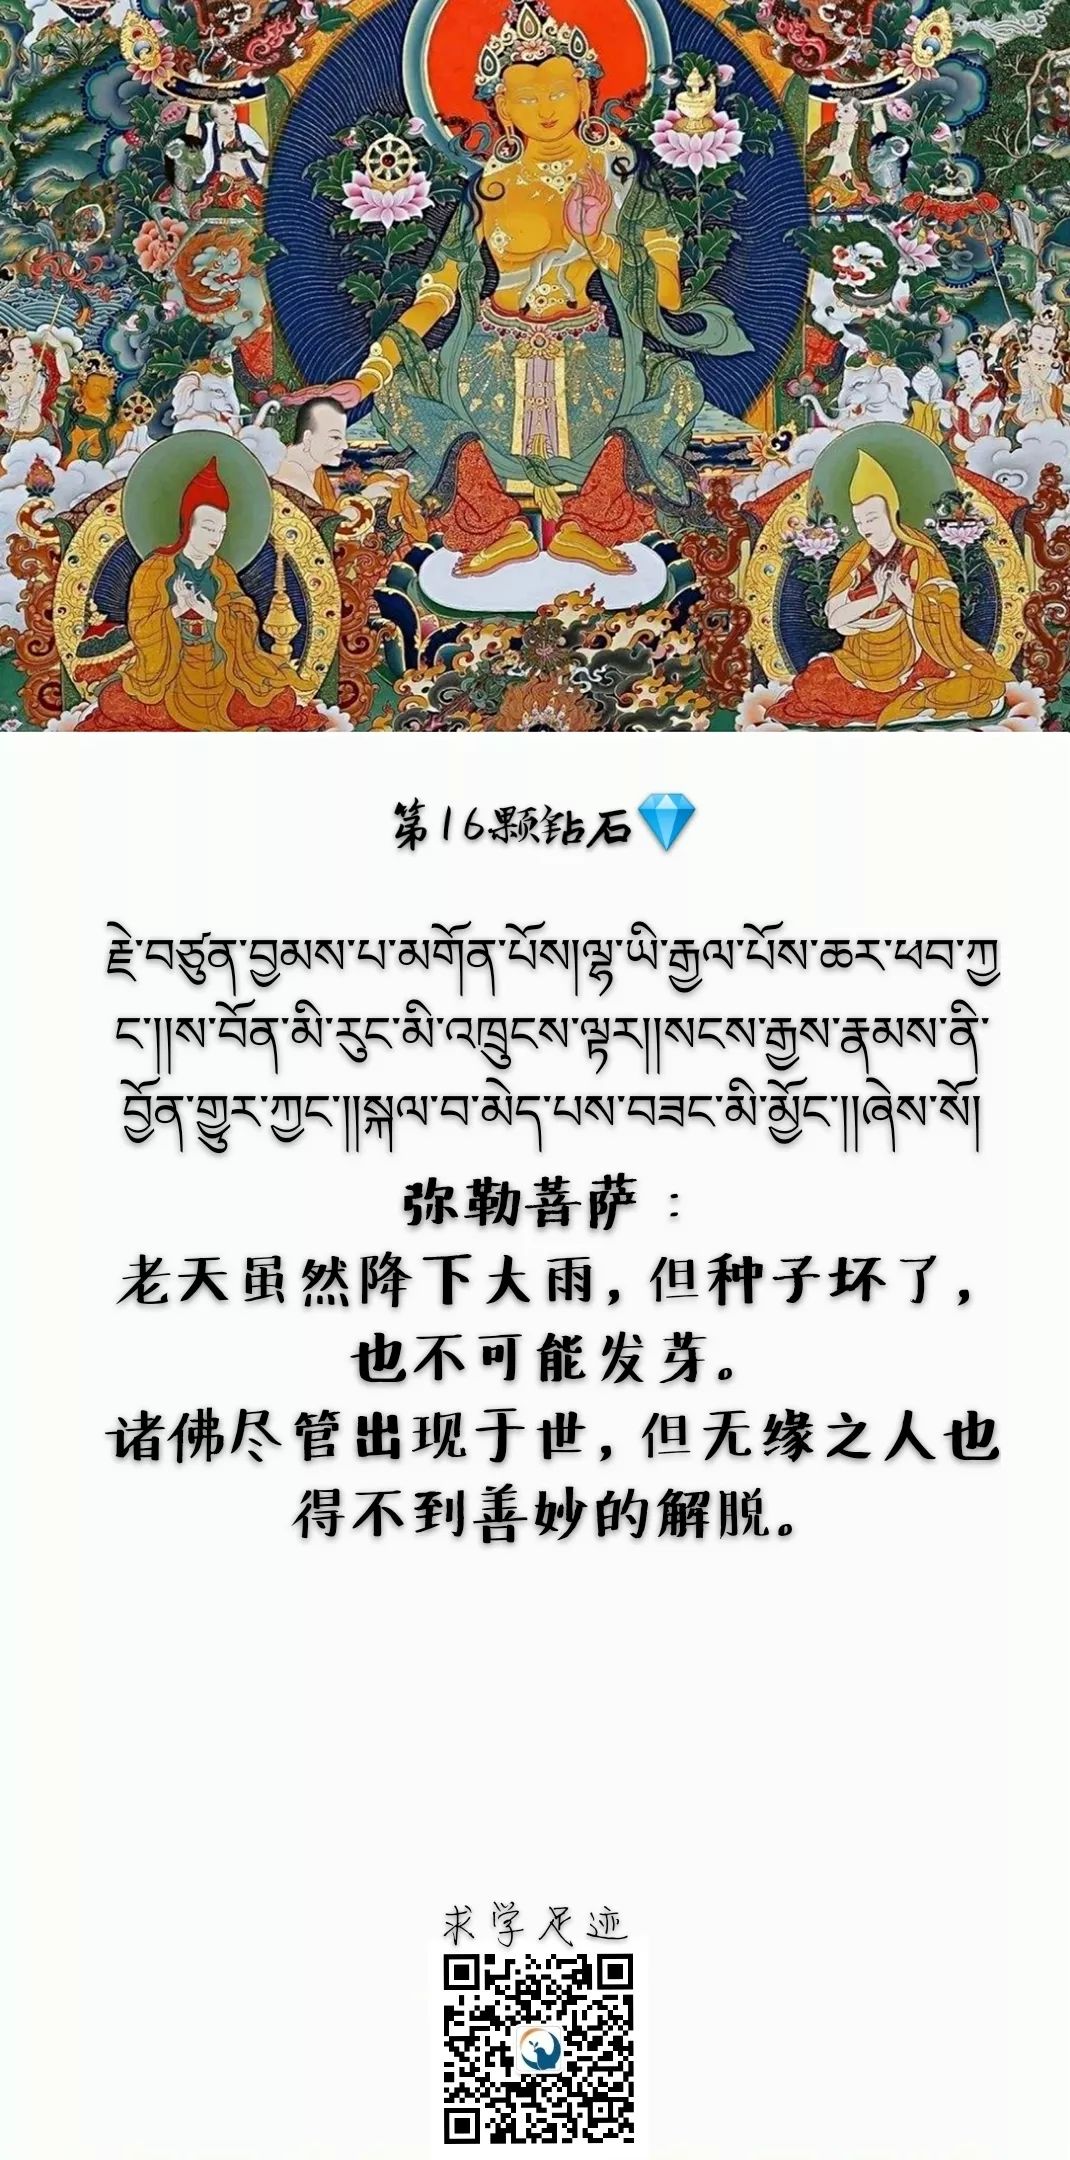 第16颗钻石💎
རྗེ་བཙུན་བྱམས་པ་མགོན་པོས།ལྷ་ཡི་རྒྱལ་པོས་ཆར་ཕབ་ཀྱ
ང་།།ས་བོན་མི་རུང་མི་འཁྲུངས་ལྟར།།སངས་རྒྱས་རྣམས་ནི་
བྱོན་གྱུར་ཀྱང་།།སྐལ་བ་མེད་པས་བཟང་མི་མྱོང་།།ཞེས་སོ།
弥勒菩萨：
老天虽然降下大雨，但种子坏了，
也不可能发芽。
诸佛尽管出现于世，但无缘之人也
得不到善妙的解脱。
求学足迹